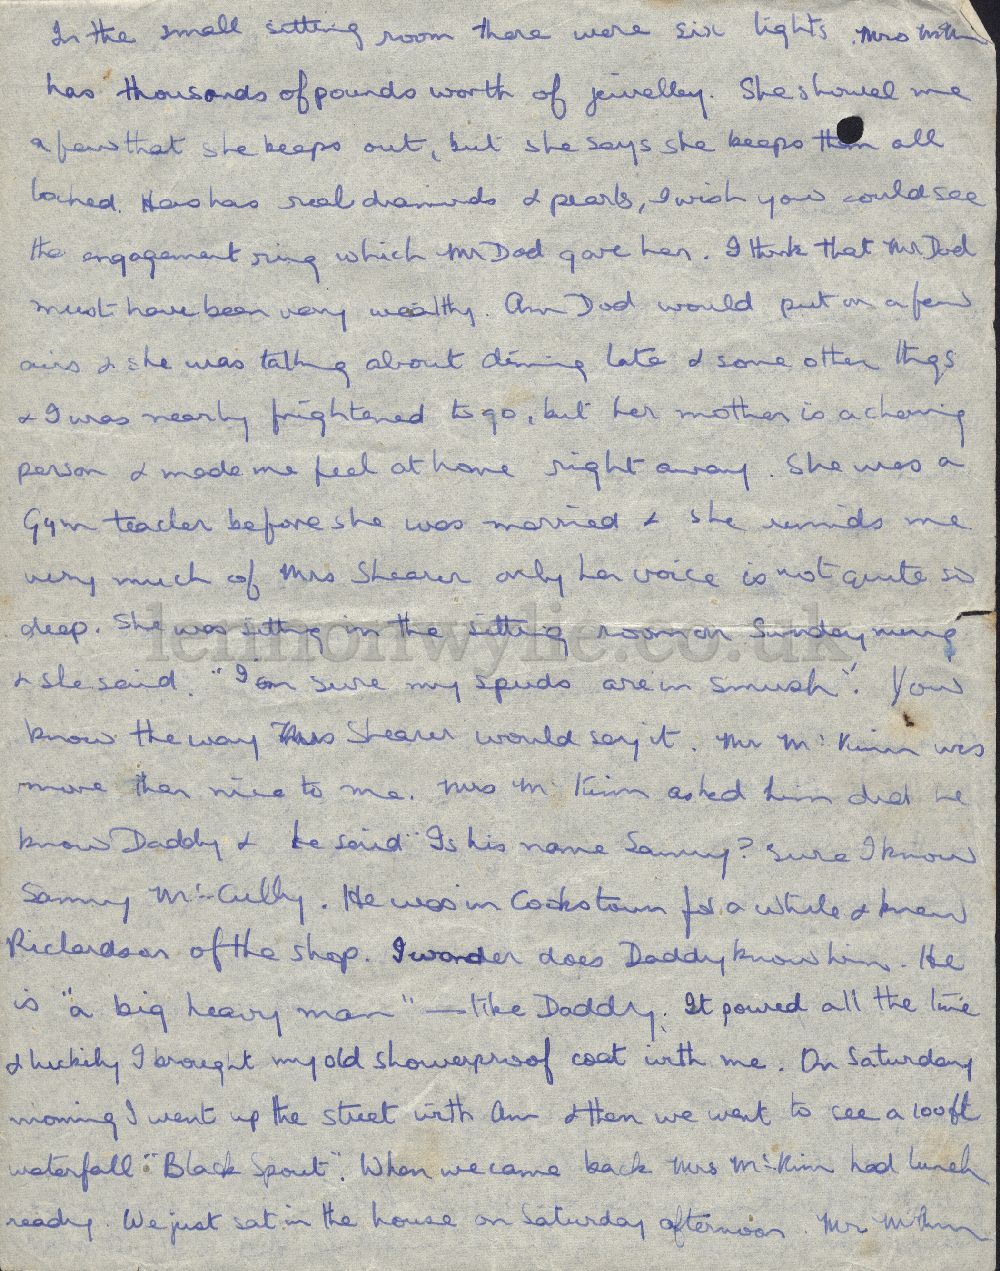 In the small sitting room there were six lights. Mrs McKinn
has thousands of pounds worth of jewelley. She showed me
a few that she keeps out, but she says she keeps them all
locked. She has real diamonds & pearls, I wish you could see
the engagement ring which Mr Dod gave her. I think that Mr Dod
must have been very wealthy. Ann Dod would put on a few
airs & she was talking about dining late & some other thgs
& I was nearly frightened to go, but her mother is a charming
person & made me feel at home right away. She was a
Gym teacher before she was married & she reminds me
very much of Mrs Shearer only her voice is not quite so
deep. She was sitting in the sitting room on Sunday morning
& she said. "I am sure my spuds are in smush". You
know the way Mrs Shearer would say it. Mr McKinn was
more than nice to me. Mrs McKinn asked him did he
know Daddy & he said "Is his name Sammy? Sure I know
Sammy McCully. He was in Cookstown for a while & knew
Richardson of the shop. I wonder does Daddy know him. He
is "a big heavy man" — like Daddy. It poured all the time
& luckily I brought my old showerproof coat with me. On Saturday
morning I went up the street with Ann & then we went to see a 100ft
waterfall "Black Spout". When we came back Mrs McKinn had lunch
ready. We just sat in the house on Saturday afternoon. Mr McKinn
lennonwylie.co.uk